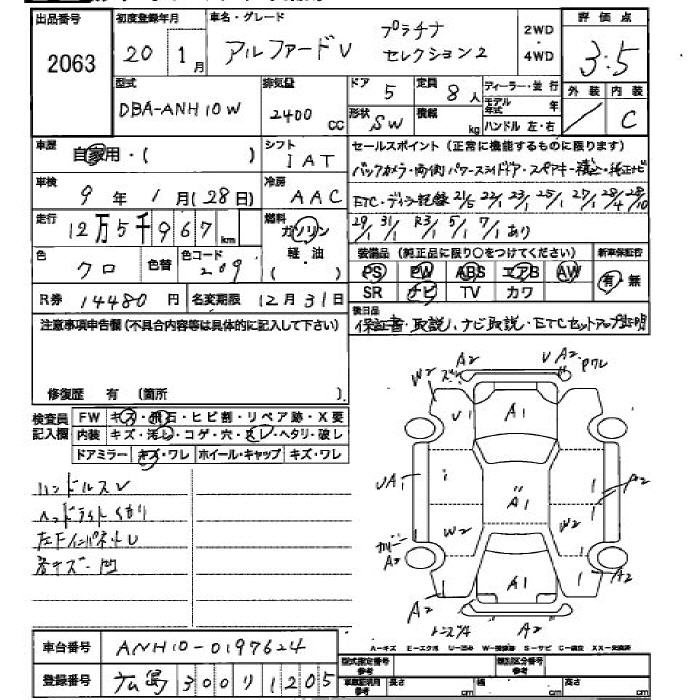 出品番号 初度登録年月 車名・グレード 評価点
2063 20 1月 アルファードV プラチナ セレクション2 2WD・4WD 3.5
型式 排気量 ドア 定員 ディーラー・並行 外装 内装
DBA-ANH10W 2400 CC 5 8人 モデル年式 年 C
形状 SW 積載 kg ハンドル 左・右
車歴 自家用・( ) シフト IAT セールスポイント (正常に機能するものに限ります)
車検 9年 1月(28日) 冷房 AAC バックカメラ・両側パワースライドドア・スペアキー・純正ナビ
ETC・ディーラー記録 21/5 22/1 23/1 25/1 27/1 28/4 28/10
29/1 31/1 R3/1 5/1 7/1 あり
走行 12万5千967km 燃料 ガソリン 軽・油 ( )
装備品 (純正品に限り○をつけてください) 新車保証書
色 クロ 色替 色コード 209
PS PW ABS エアB AW 有・無
SR ナビ TV カワ
R券 14480円 名変期限 12月31日
後日品 保証書・取説、ナビ取説・ETCセットアップ証明
注意事項申告欄 (不具合内容等は具体的に記入して下さい)
修復歴 有 (箇所 )
検査員記入欄 FW キズ・飛石・ヒビ割・リペア跡・X要
内装 キズ・汚レ・コゲ・穴・スレ・ヘタリ・破レ
ドアミラー キズ・ワレ ホイール・キャップ キズ・ワレ
ハンドルスレ
ヘッドライトくもり
小キズ・凹
A2 V A2 Pワレ
W2
V1 A1
UA1 A1 A2
W2 W2
A2
A1 A2
A2 A2
A-キズ E-エクボ U-凹み W-補修跡 S-サビ C-腐食 XX-交換済
車台番号 ANH10-0197624
型式指定番号 参考 類別区分番号 参考
登録番号 広島 300 リ 1205
車庫証明用 参考 長さ cm 幅 cm 高さ cm